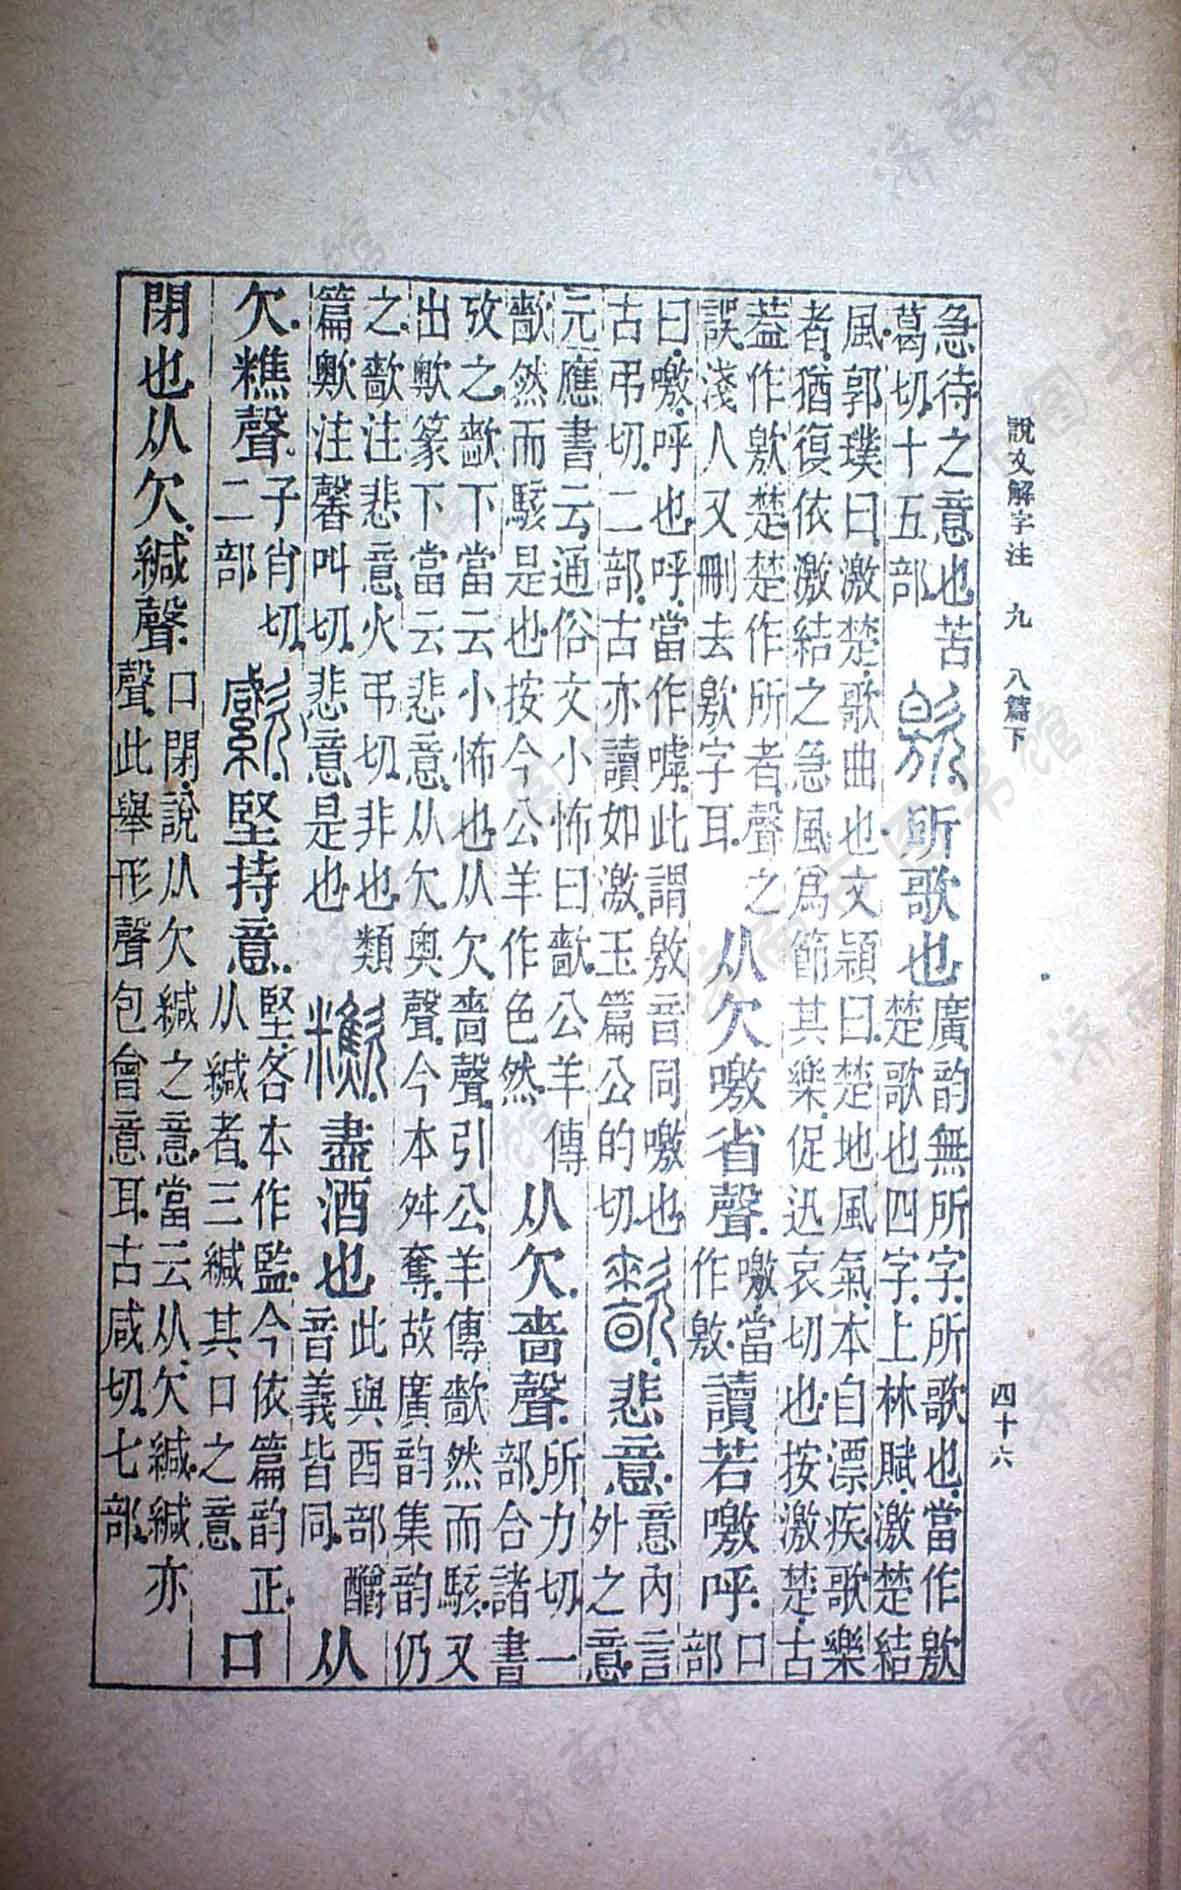 說文解字注 九 八篇下
四十六
急待之意也苦
葛切十五部
所歌也
廣韵無所字所歌也當作㰾
楚歌也四字上林賦激楚結
風郭璞曰激楚歌曲也文穎曰楚地風氣本自漂疾歌樂
者猶復依激結之急風爲節其樂促迅哀切也按激楚古
葢作㰾楚楚作所者聲之
誤淺人又刪去㰾字耳
从欠噭省聲
噭當
作敫
讀若噭呼
口
部
曰噭呼也呼當作嘑此謂敫音同噭也
古弔切二部古亦讀如激玉篇公的切
悲意
意内言
外之意
元應書云通俗文小怖曰㱇公羊傳
㱇然而駭是也按今公羊作色然
从欠嗇聲
所力切一
部合諸書
攷之㱇下當云小怖也从欠嗇聲引公羊傳㱇然而駭又
出篆下當云悲意从欠奥聲今本舛奪故廣韵集韵仍
之㱇注悲意火弔切非也類
篇注馨叫切悲意是也
盡酒也
此與酉部釂
音義皆同
从
欠糕聲
子肖切
二部
堅持意
堅各本作監今依篇韵正
从緘者三緘其口之意
口
閉也从欠緘聲
口閉說从欠緘之意當云从欠緘緘亦
聲此舉形聲包會意耳古咸切七部